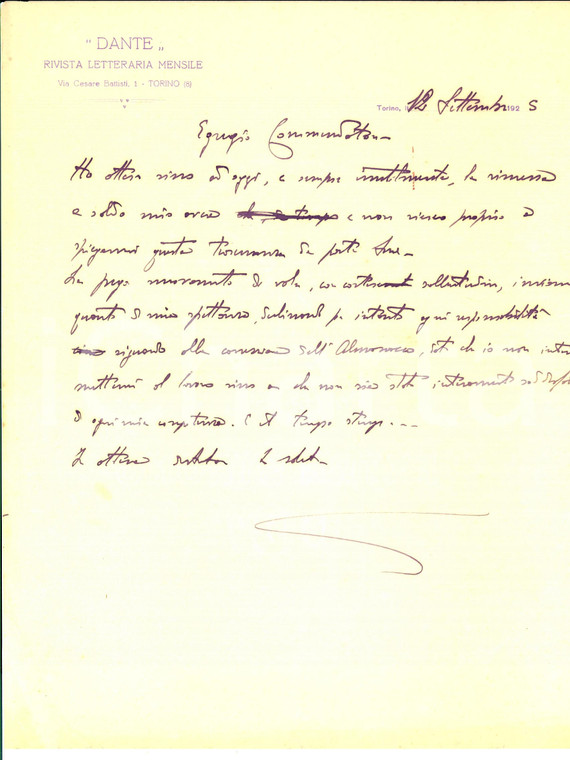 " DANTE „
RIVISTA LETTERARIA MENSILE
Via Cesare Battisti, 1 - TORINO (8)
Torino, 12 Settembre 1925
Egregio Commendatore -
Ho atteso sino ad oggi, e sempre inutilmente, la rimessa
a saldo mio avere e non riesco proprio a
spiegarmi questa trascuranza da parte Sua -
La prego nuovamente di volere, con cortese sollecitudine,
quanto di mia spettanza, declinando per intanto ogni responsabilità
riguardo alla dell'Almanacco, dato che io non
mettermi al lavoro sino a che non sia stato interamente
di ogni mia . E il tempo stringe...
In attesa